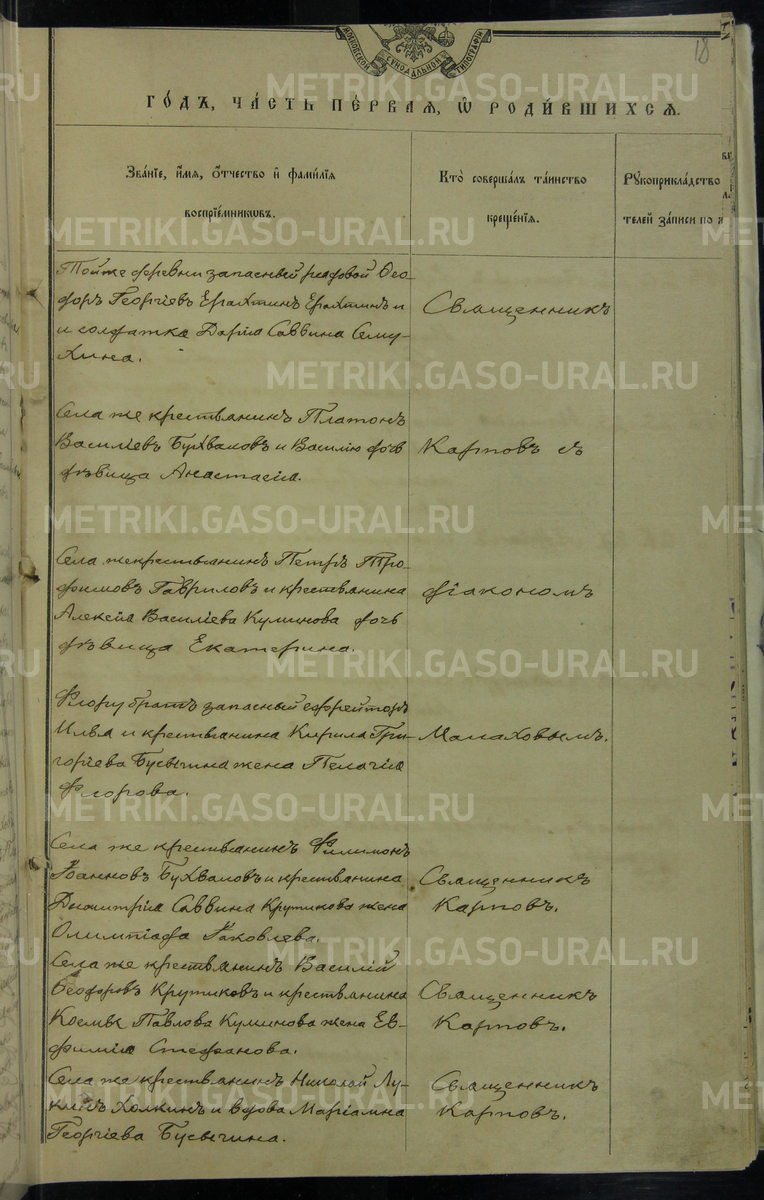 МОСКОВСКОЙ СѴНОДАЛЬНОЙ ТИПОГРАФІИ
18
ГО́ДЪ, ЧА́СТЬ ПЕ́РВАЯ, Ѡ҆ РОДИ́ВШИХСЯ.
Зва́нїе, и҆́мѧ, ѻ҆́тчество и҆ фами́лїѧ
воспрїе́мникѡвъ.
Кто̀ соверша́лъ та́инство
креще́нїѧ.
Рꙋкоприкла́дство
телей за́писи по
Той же деревни запасный рядовой Ѳео-
доръ Георгіевъ Ерахтинъ Ерахтинъ и
и солдатка Дарія Саввина Сему-
хина.
Священникъ
Села же крестьянинъ Платонъ
Василіевъ Бухваловъ и Василію дочь
дѣвица Анастасія.
Карповъ съ
Села же крестьянинъ Петръ Тро-
фимовъ Гавриловъ и крестьянина
Алексія Василіева Куминова дочь
дѣвица Екатерина.
діакономъ
Флору братъ запасный ефрейторъ
Илья и крестьянина Кирила Гри-
горіева Бусыгина жена Пелагія
Флорова.
Малаховымъ.
Села же крестьянинъ Филимонъ
Іоанновъ Бухваловъ и крестьянина
Димитрія Саввина Крутикова жена
Олимпіада Іаковлева.
Священникъ
Карповъ.
Села же крестьянинъ Василій
Ѳеодоровъ Крутиковъ и крестьянина
Космы Павлова Куминова жена Ев-
фимія Стефанова.
Священникъ
Карповъ.
Села же крестьянинъ Николай Лу-
кинъ Холкинъ и вдова Маріамна
Георгіева Бусыгина.
Священникъ
Карповъ.
METRIKI.GASO-URAL.RU